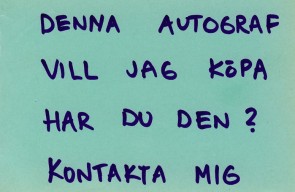 DENNA AUTOGRAF
VILL JAG KÖPA
HAR DU DEN?
KONTAKTA MIG